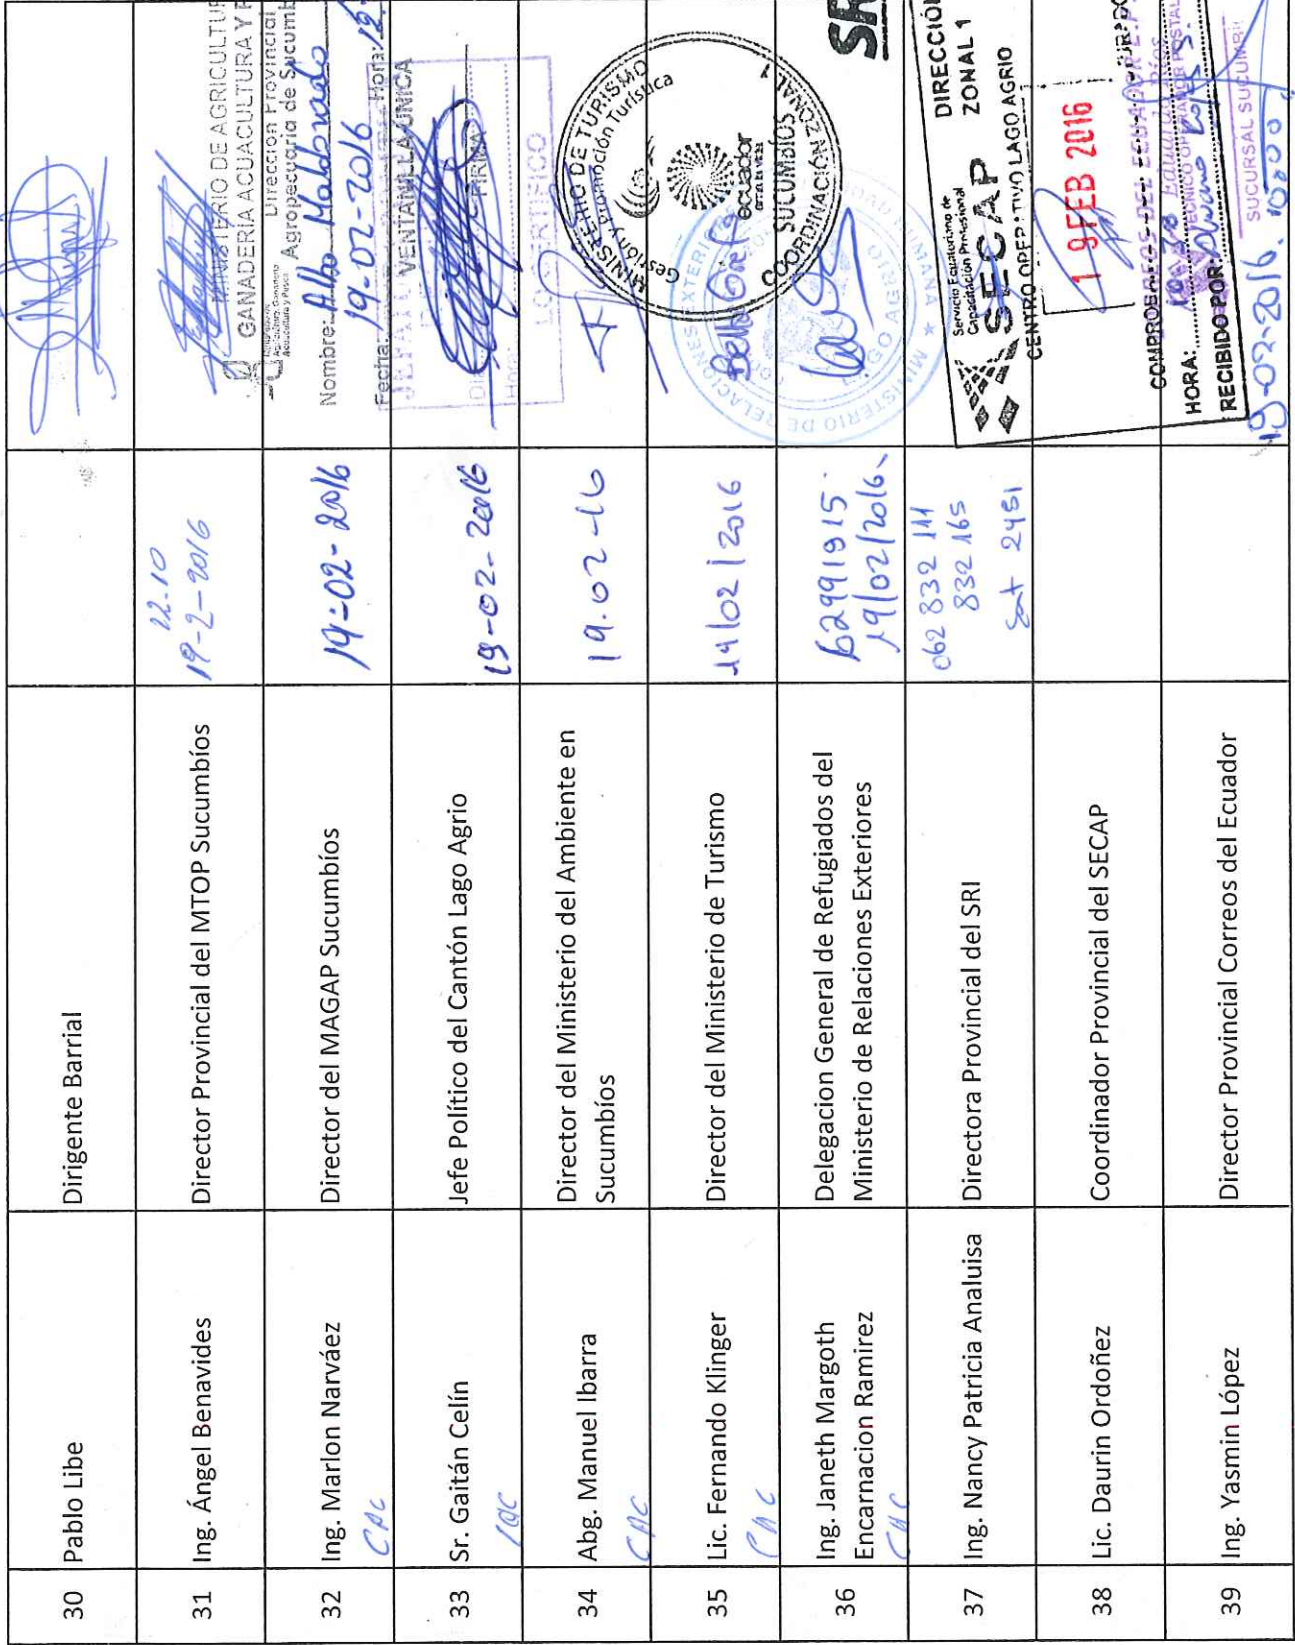 30 Pablo Libe Dirigente Barrial
31 Ing. Ángel Benavides Director Provincial del MTOP Sucumbíos 22-10
19-2-2016
32 Ing. Marlon Narváez Director del MAGAP Sucumbíos 19-02-2016
CAC
MINISTERIO DE AGRICULTUR
GANADERIA ACUACULTURA Y P
Dirección Provincial
Agropecuaria de Sucumb
Nombre: Alba Maldonado
Fecha: 19-02-2016 Hora: 12
33 Sr. Gaitán Celín Jefe Político del Cantón Lago Agrio 19-02-2016
VENTANILLA UNICA
FIRMA
LO CERTIFICO
34 Abg. Manuel Ibarra Director del Ministerio del Ambiente en
Sucumbíos 19.02-16
CAC
35 Lic. Fernando Klinger Director del Ministerio de Turismo 19/02/2016
CAC
MINISTERIO DE TURISMO
Gestión y Promoción Turística
ecuador
SUCUMBÍOS
COORDINACIÓN ZONAL 1
36 Ing. Janeth Margoth
Encarnacion Ramirez Delegacion General de Refugiados del
Ministerio de Relaciones Exteriores 62991915
19/02/2016
CAC
MINISTERIO DE RELACIONES EXTERIORES
37 Ing. Nancy Patricia Analuisa Directora Provincial del SRI 062 832 111
832 165
2451
SR
DIRECCIÓN
ZONAL 1
Servicio Ecuatoriano de
Capacitación Profesional
SECAP
CENTRO OPERATIVO LAGO AGRIO
38 Lic. Daurin Ordoñez Coordinador Provincial del SECAP
19 FEB 2016
39 Ing. Yasmin López Director Provincial Correos del Ecuador
CORREOS DEL ECUADOR E.P.
HORA:
RECIBIDO POR:
SUCURSAL SUCUMBI
19-02-2016.